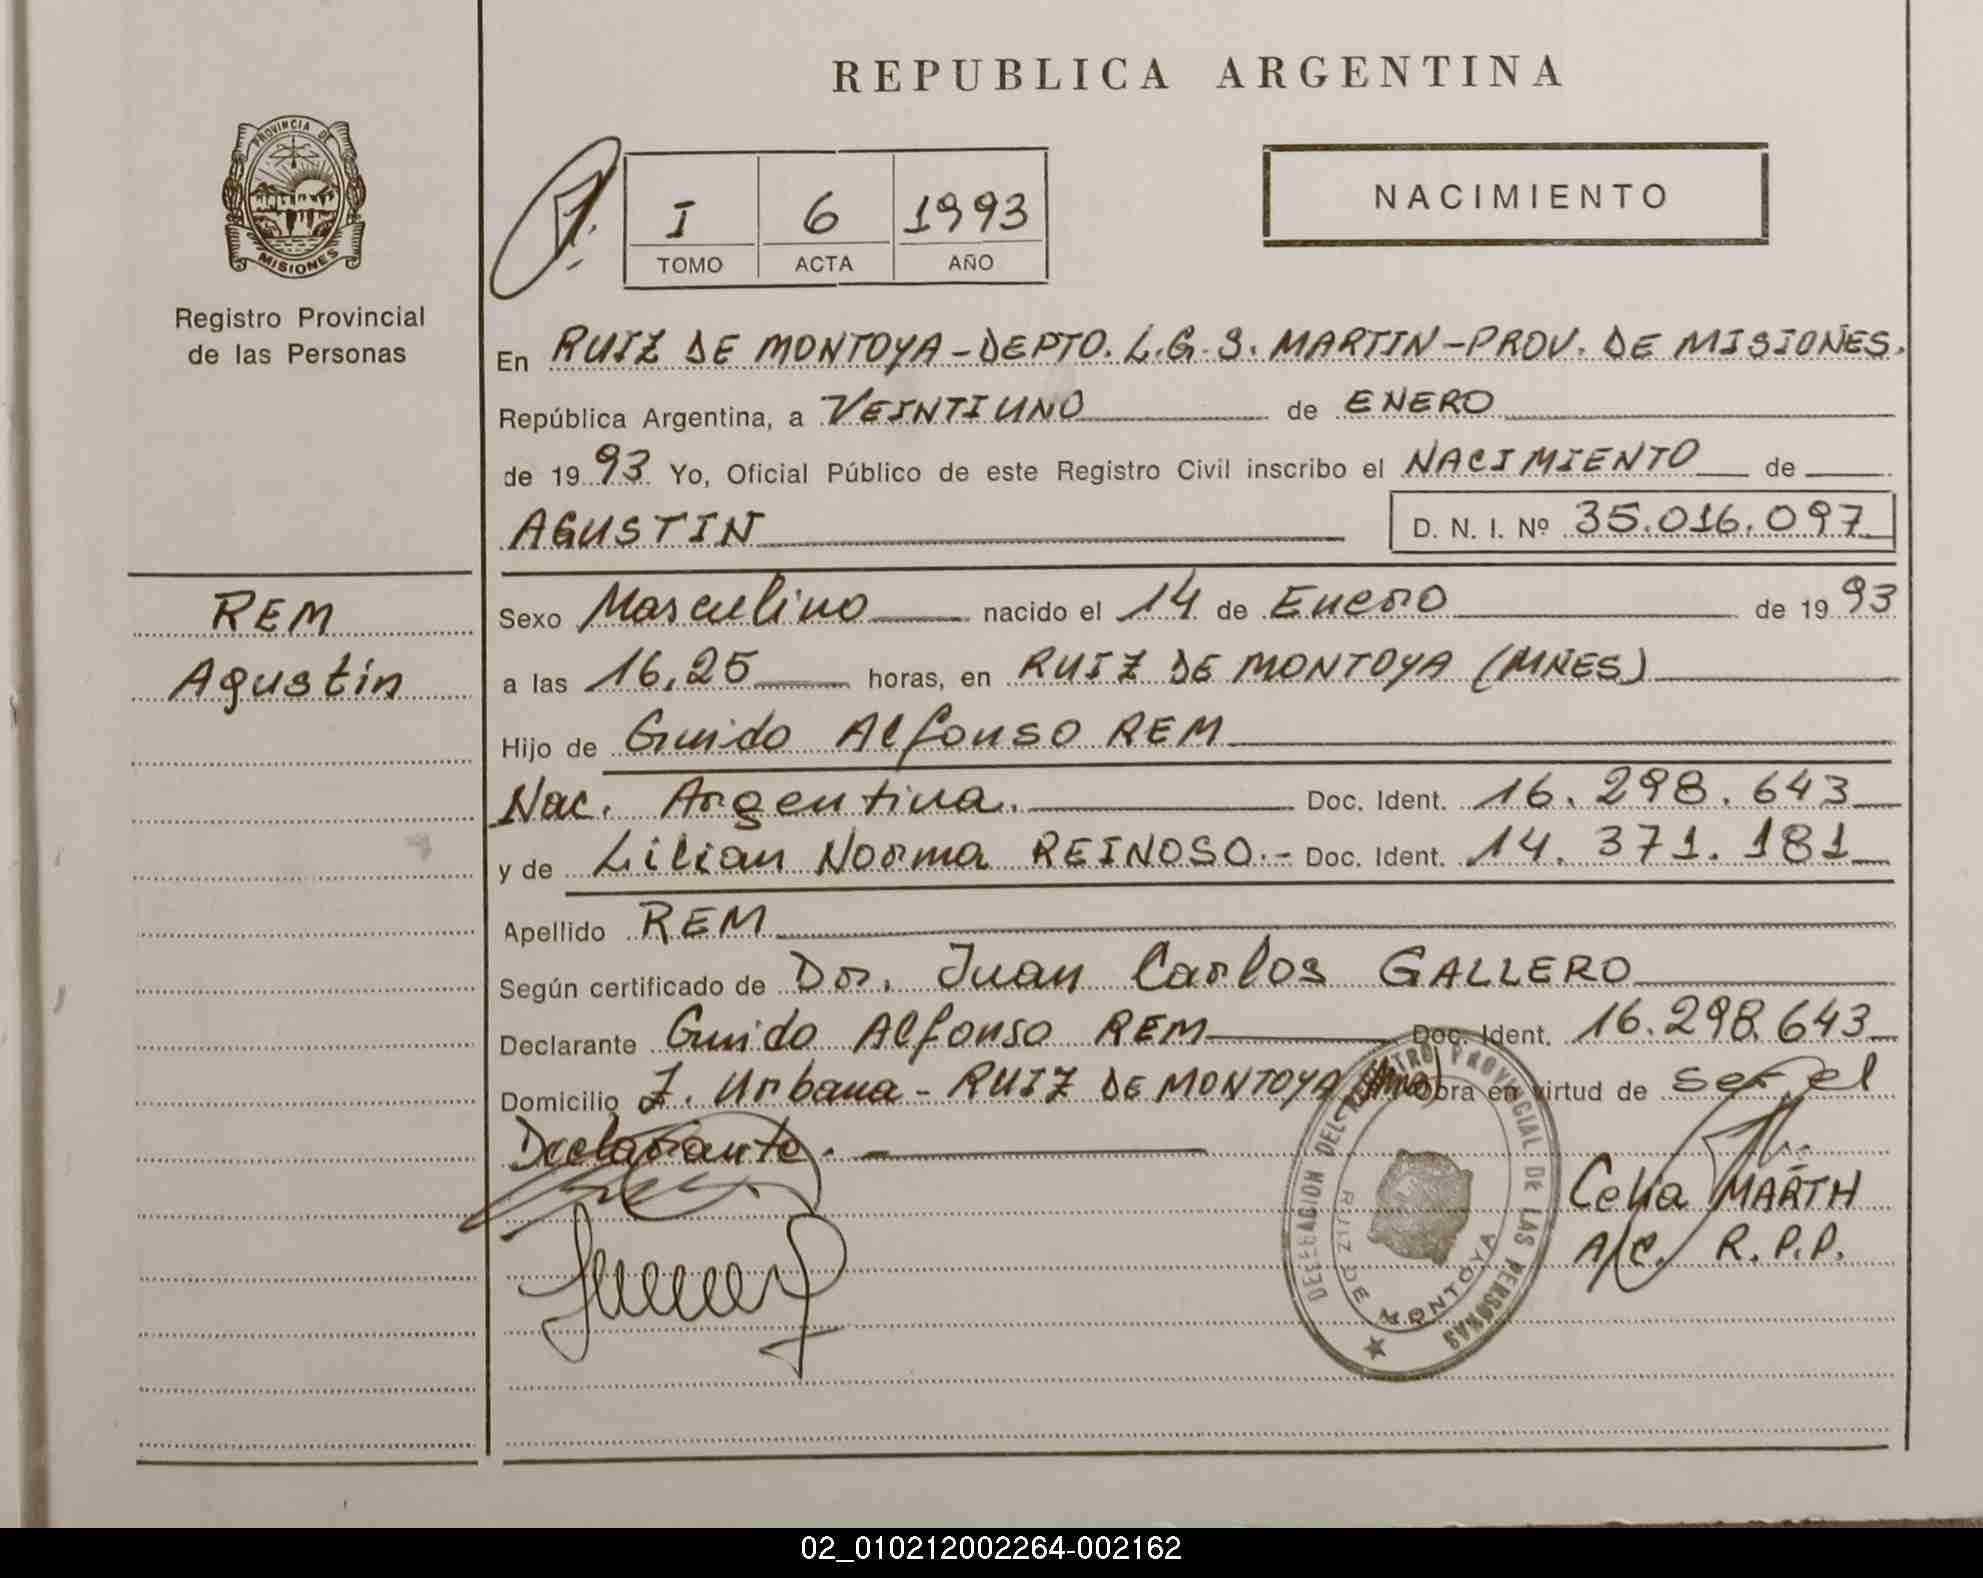 REPUBLICA ARGENTINA
PROVINCIA DE
MISIONES
Registro Provincial
de las Personas
I 6 1993
TOMO ACTA AÑO
NACIMIENTO
En RUIZ DE MONTOYA - DEPTO. L.G.S. MARTIN - PROV. DE MISIONES.
República Argentina, a VEINTIUNO de ENERO
de 1993. Yo, Oficial Público de este Registro Civil inscribo el NACIMIENTO de
AGUSTIN D. N. I. Nº 35.016.097
REM
Agustin
Sexo Masculino nacido el 14 de Enero de 1993
a las 16,25 horas, en RUIZ DE MONTOYA (MNES)
Hijo de Guido Alfonso REM
Nac. Argentina. Doc. Ident. 16.298.643
y de Lilian Norma REINOSO.- Doc. Ident. 14.371.181
Apellido REM
Según certificado de Dr. Juan Carlos GALLERO
Declarante Guido Alfonso REM Doc. Ident. 16.298.643
Domicilio Z. Urbana - RUIZ DE MONTOYA Obra en virtud de ser el
Declarante.
DELEGACION DEL REGISTRO PROVINCIAL DE LAS PERSONAS
RUIZ DE MONTOYA
Celia MARTH
A/C. R.P.P.
02_010212002264-002162